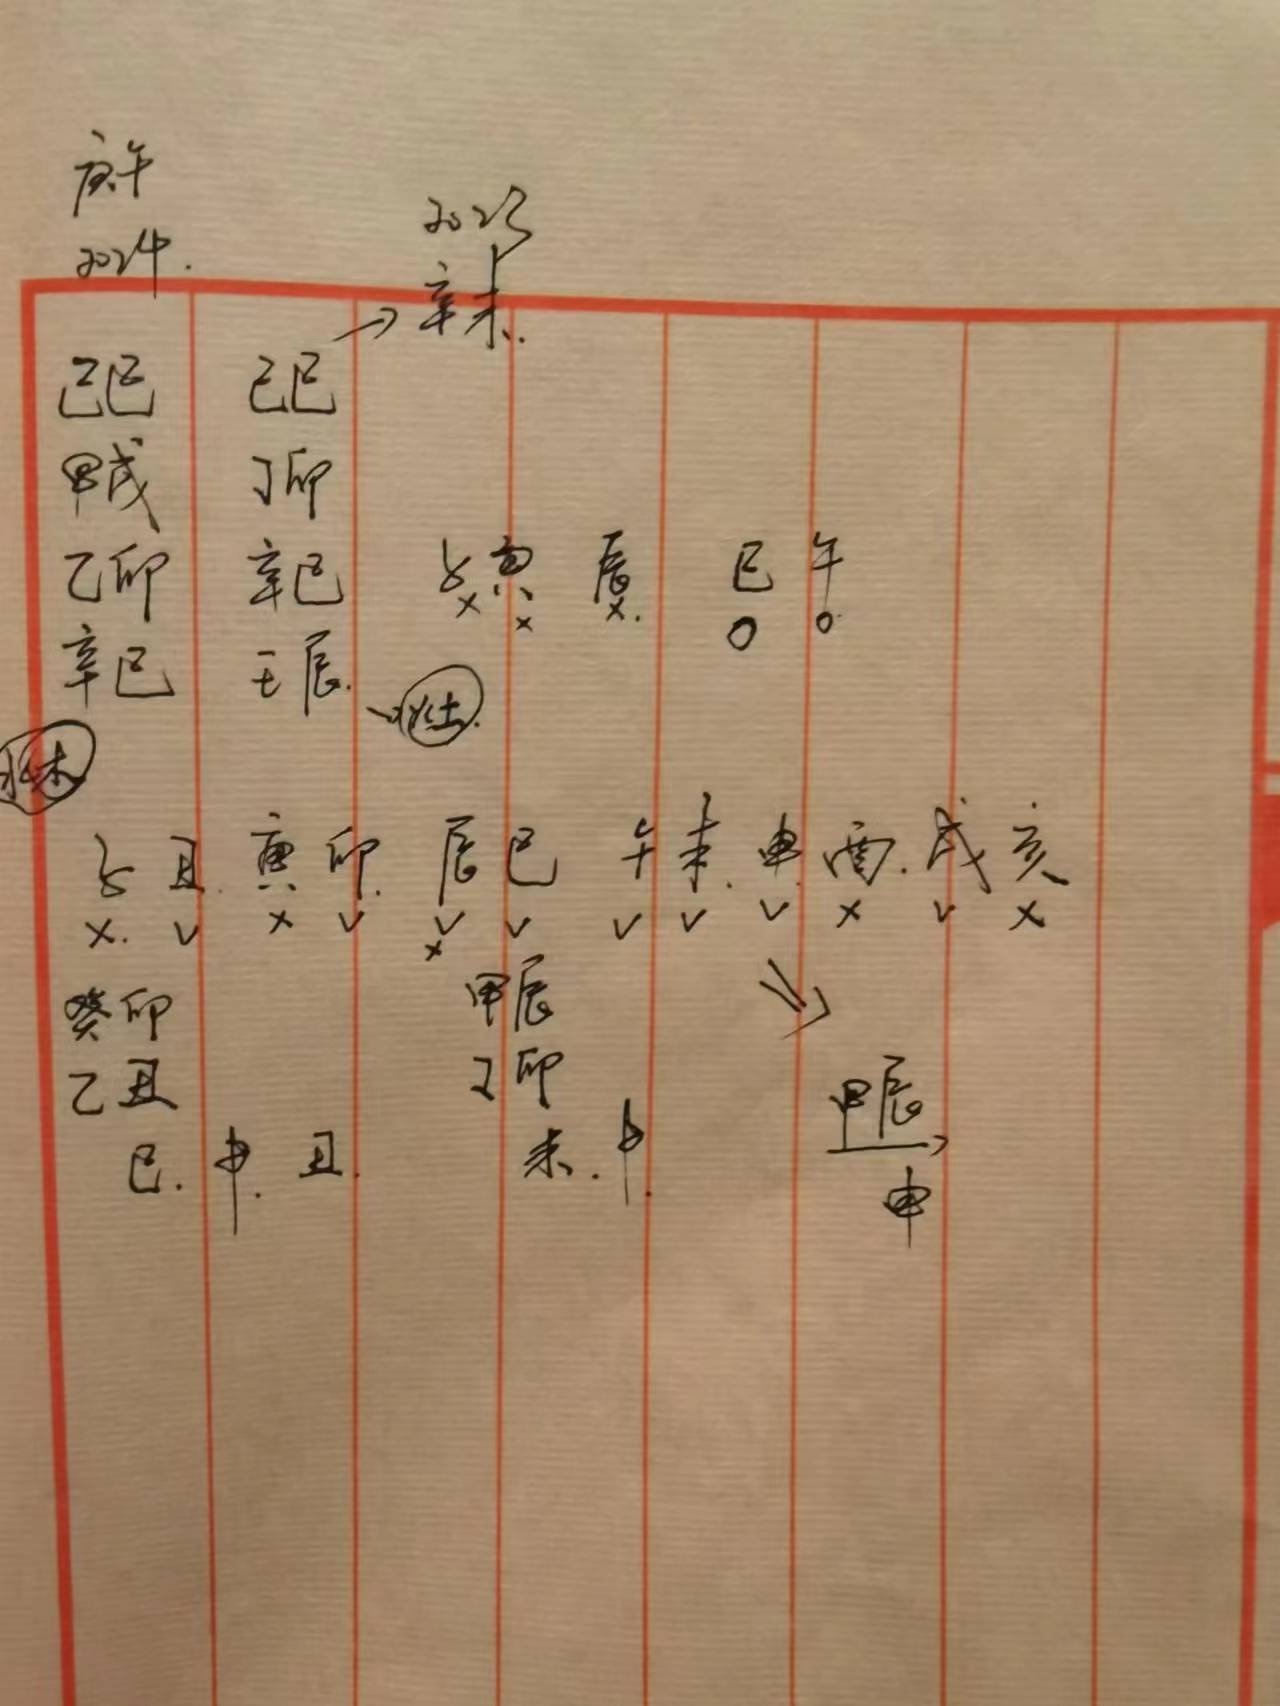 庚午
2024.
2023
→辛未.
己巳 己巳
甲戌 丁卯
乙卯 辛巳 子 寅 辰 巳 午
x x x. o o
辛巳 壬辰.
水土.
水木
子 丑. 寅 卯 辰 巳 午 未. 申. 酉. 戌 亥
x. v x v v v v v v x v x
x
癸卯 甲辰
乙丑 丁卯 甲辰
巳. 申. 丑. 未. 申.
申